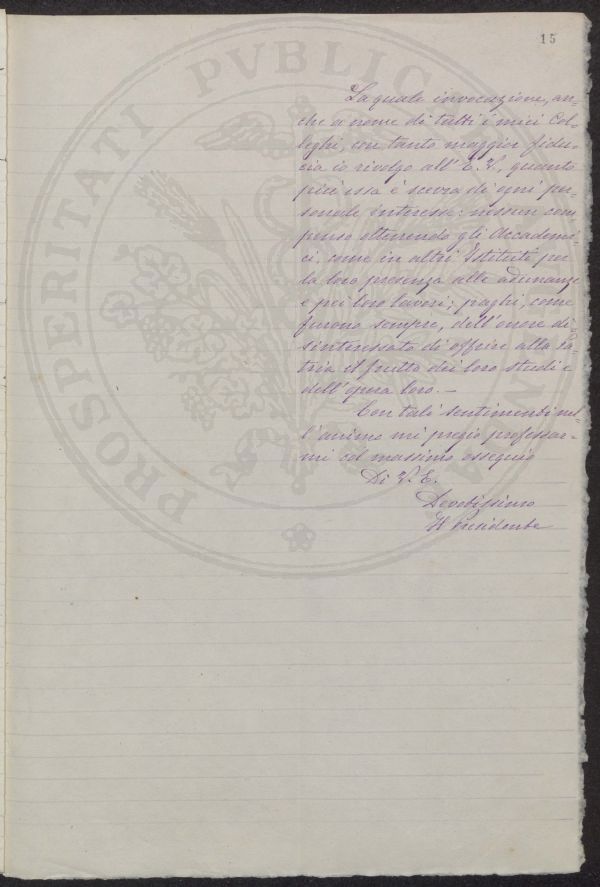 15
La quale invocazione, an-
che a nome di tutti i miei Col-
leghi, con tanto maggior fidu-
cia io rivolgo all' E. V., quanto
più essa è scevra di ogni per-
sonale interesse: nessun com
penso ottenendo gli Accademi-
ci come in altri Istituti per
la loro presenza alle adunanze
e pei loro lavori; paghi, come
furono sempre, dell'onore di-
sinteressato di offrire alla Pa-
tria il frutto dei loro studi e
dell'opera loro. -
Con tali sentimenti nel-
l'animo mi pregio professar-
mi col massimo ossequio
Di V. E.
Devotissimo
Il Presidente
PROSPERITATI PVBLICAE